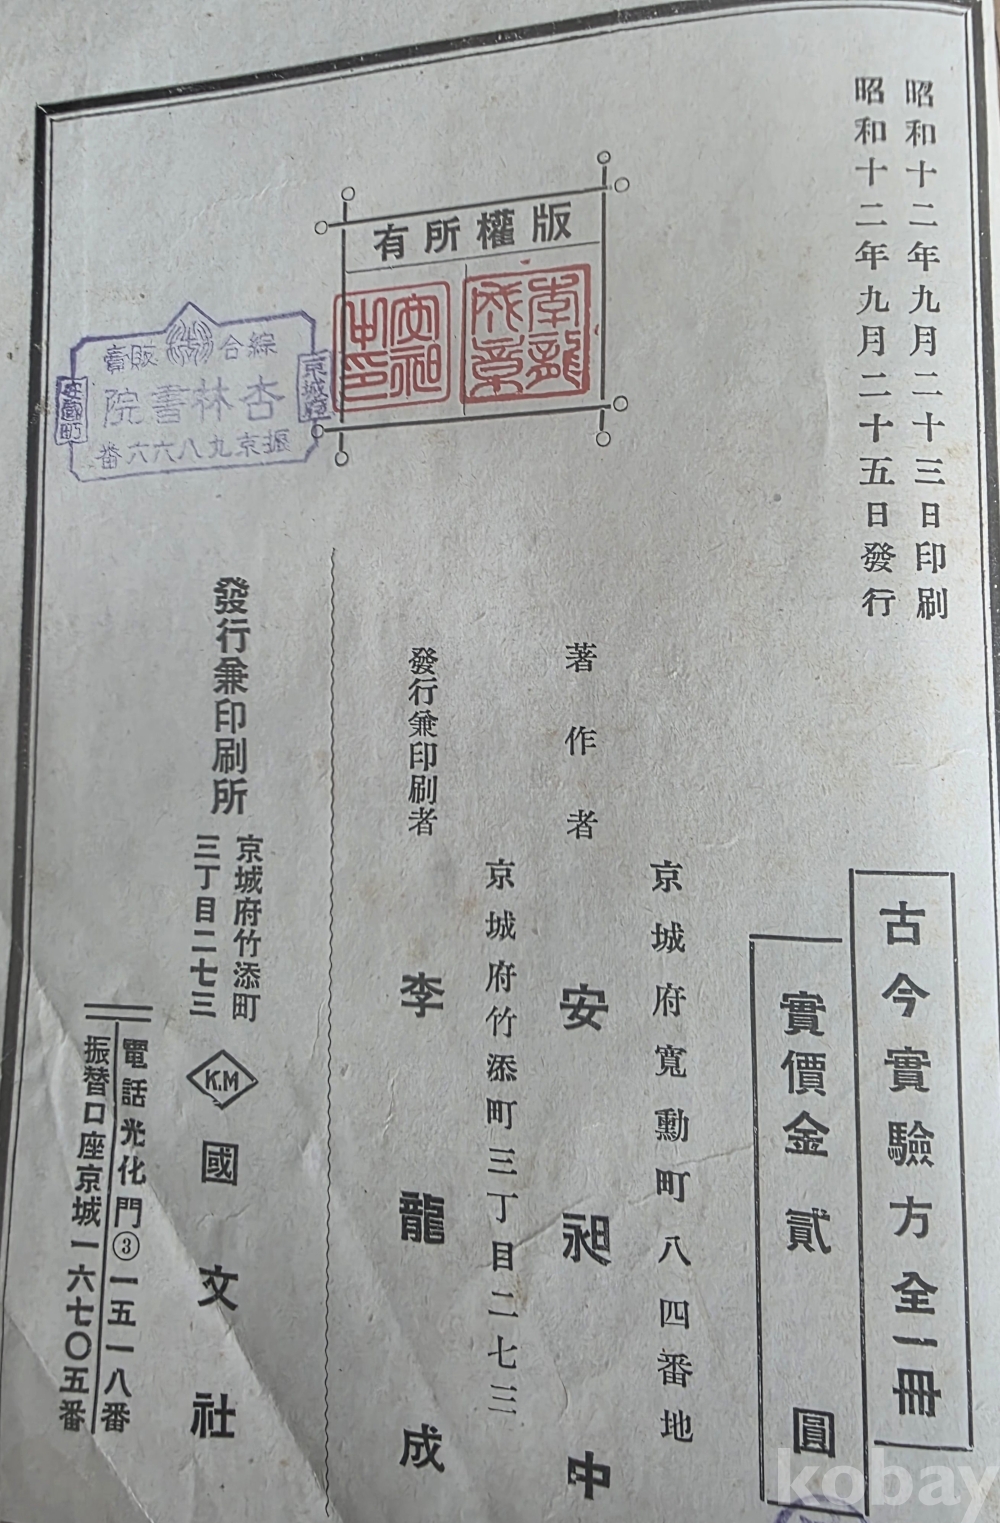 昭和十二年九月二十三日印刷
昭和十二年九月二十五日發行
古今實驗方全一冊
實價金貳圓
版權所有
李龍成章
安昶中印
京城府寬勳町八四番地
著作者 安昶中
京城府竹添町三丁目二七三
發行兼印刷者 李龍成
發行兼印刷所
京城府竹添町
三丁目二七三
K.M
國文社
電話光化門③一五一八番
振替口座京城一六七〇五番
綜合販賣
京城府
杏林書院
安國町
振京九八六六番
kobay